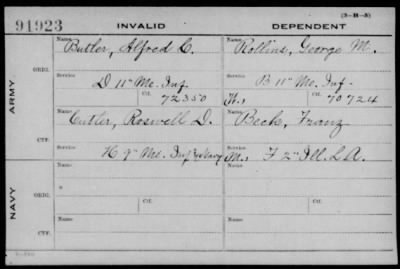 91923 INVALID DEPENDENT (3-H-8)
ARMY
ORIG.
Name Butler, Alfred C. Name Rollins, George M.
Service D 11" Me. Inf. Service B 11" Me. Inf.
Ctf. 72350 Ctf. 70724
CTF.
Name Cutler, Roswell D. Name Beck, Franz
Service H 9" Me. Inf & Navy Service F 2" Ill. L.A.
NAVY
ORIG.
Name Name
Service Service
Ctf. Ctf.
CTF.
Name Name
Service Service